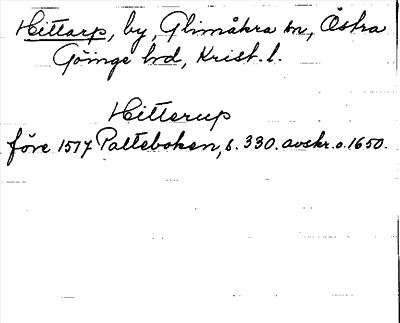 Hittarp, by, Glimåkra sn, Östra
Göinge hrd, Krist. l.
Hitterup
före 1517 Palteboken, s. 330. avskr. o. 1650.